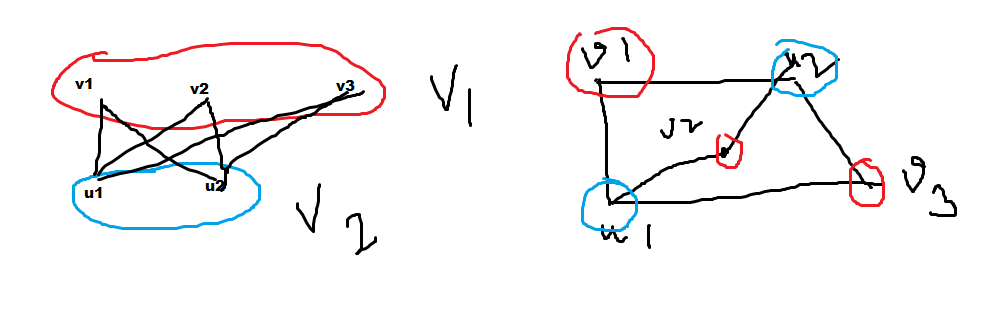 v1 v2 v3
V1
u1 u2
V2
v1
u2
v2
v3
u1